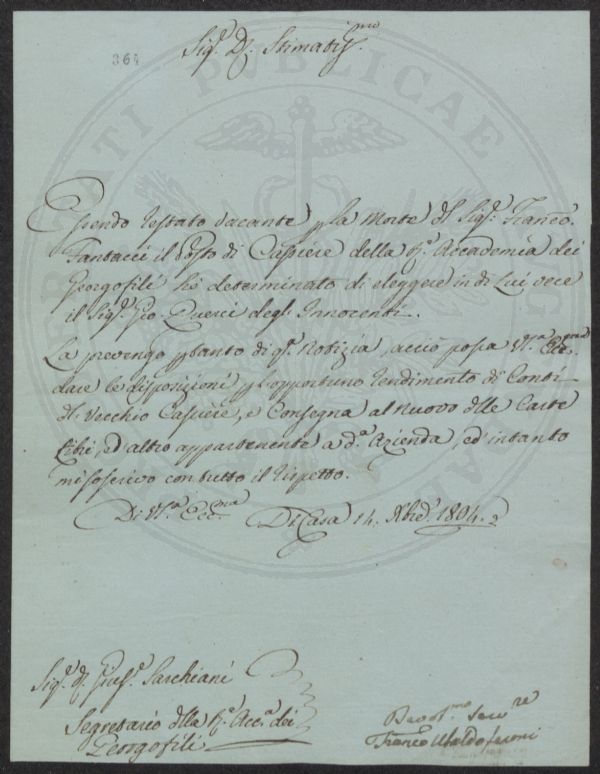 364
Sig.r D.r Stimatis.mo
Essendo restato vacante p la Morte dl Sig.r Franco.
Fantacci il Posto di Cassiere della R.e Accademia dei
Georgofili hò determinato di eleggere in di Lui vece
il Sig.r Gio. Querci degl'Innocenti.
La prevengo ptanto di q.ta Notizia, acciò possa V.ra Ecc.ma
dare le disposizioni p l'opportuno rendimento di Conti
dl Vecchio Cassiere, e Consegna al nuovo dlle Carte
Libri, ed altro appartenente a d.a Azienda, ed intanto
mi soscrivo con tutto il rispetto.
Di V.ra Ecc.ma
Di Casa 14. Xbre 1804.
Sig.r D.r Gius.e Sarchiani
Segretario dlla R.e Acc.a dei
Georgofili
Devot.mo Serv.re
Franco Ubaldo Feroni